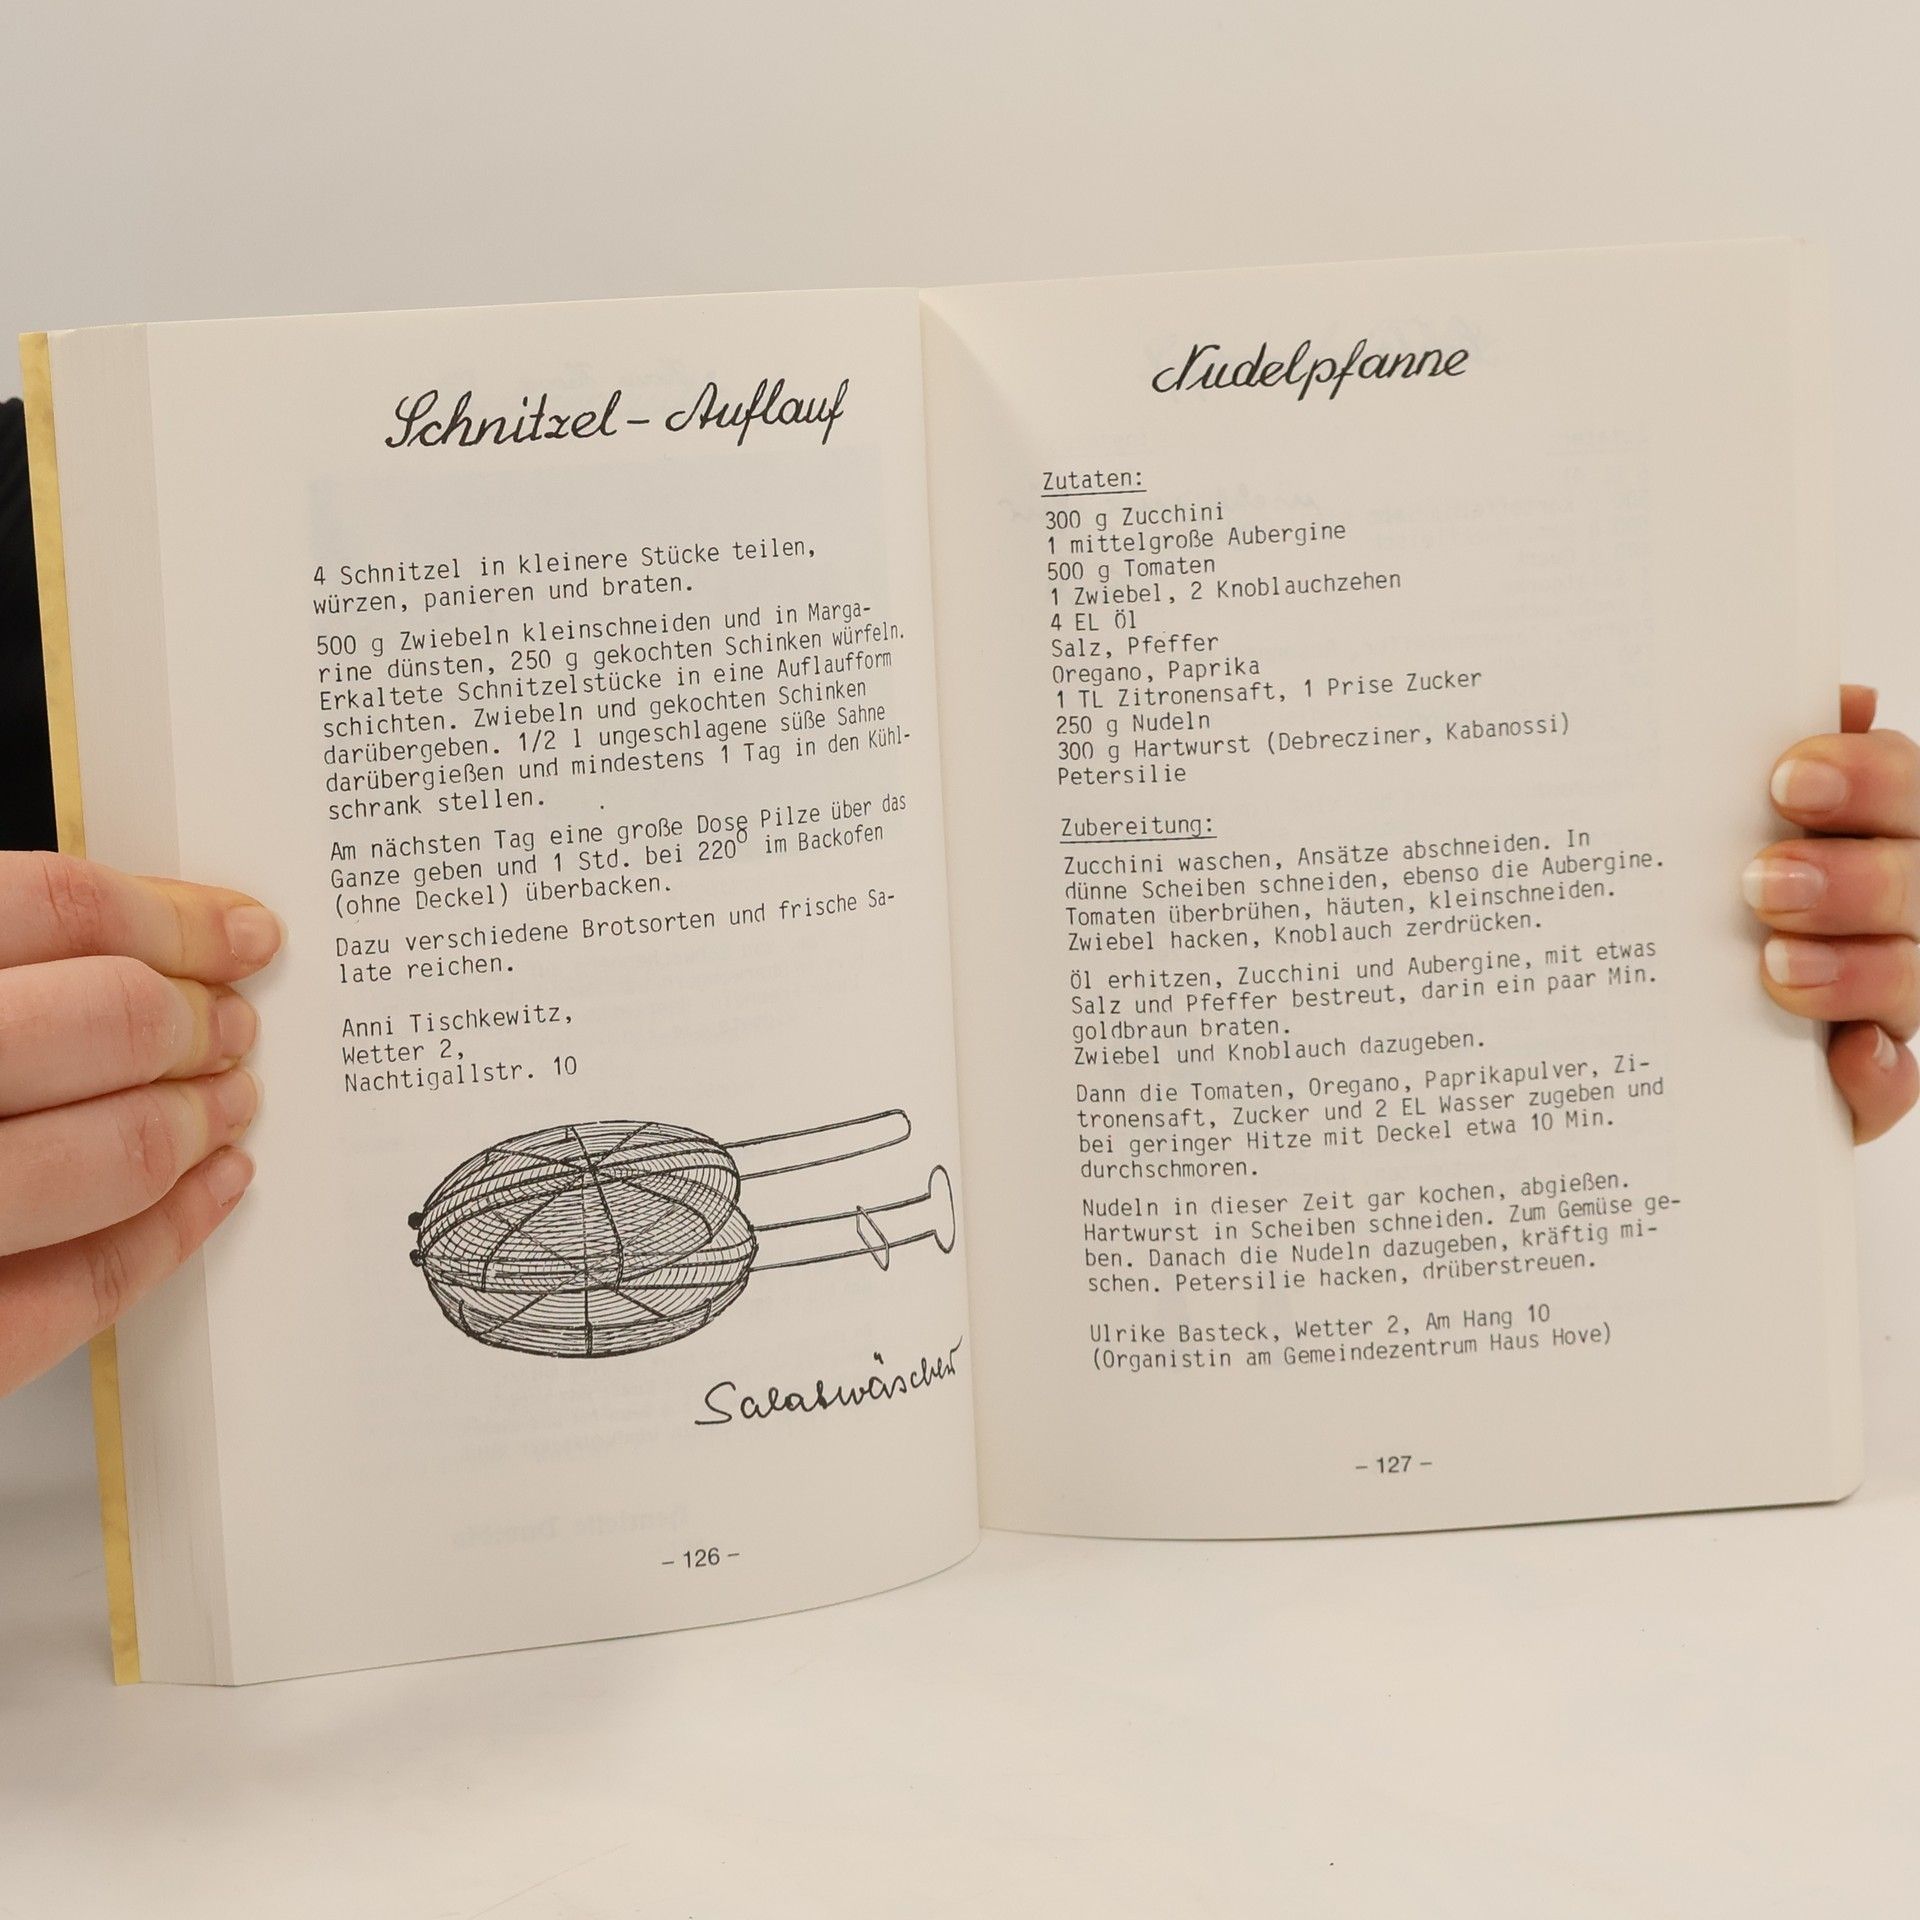 Schnitzel - Auflauf
4 Schnitzel in kleinere Stücke teilen,
würzen, panieren und braten.
500 g Zwiebeln kleinschneiden und in Marga-
rine dünsten, 250 g gekochten Schinken würfeln.
Erkaltete Schnitzelstücke in eine Auflaufform
schichten. Zwiebeln und gekochten Schinken
darübergeben. 1/2 l ungeschlagene süße Sahne
darübergießen und mindestens 1 Tag in den Kühl-
schrank stellen.
Am nächsten Tag eine große Dose Pilze über das
Ganze geben und 1 Std. bei 220° im Backofen
(ohne Deckel) überbacken.
Dazu verschiedene Brotsorten und frische Sa-
late reichen.
Anni Tischkewitz,
Wetter 2,
Nachtigallstr. 10
Salatwäscher
- 126 -
Nudelpfanne
Zutaten:
300 g Zucchini
1 mittelgroße Aubergine
500 g Tomaten
1 Zwiebel, 2 Knoblauchzehen
4 EL Öl
Salz, Pfeffer
Oregano, Paprika
1 TL Zitronensaft, 1 Prise Zucker
250 g Nudeln
300 g Hartwurst (Debrecziner, Kabanossi)
Petersilie
Zubereitung:
Zucchini waschen, Ansätze abschneiden. In
dünne Scheiben schneiden, ebenso die Aubergine.
Tomaten überbrühen, häuten, kleinschneiden.
Zwiebel hacken, Knoblauch zerdrücken.
Öl erhitzen, Zucchini und Aubergine, mit etwas
Salz und Pfeffer bestreut, darin ein paar Min.
goldbraun braten.
Zwiebel und Knoblauch dazugeben.
Dann die Tomaten, Oregano, Paprikapulver, Zi-
tronensaft, Zucker und 2 EL Wasser zugeben und
bei geringer Hitze mit Deckel etwa 10 Min.
durchschmoren.
Nudeln in dieser Zeit gar kochen, abgießen.
Hartwurst in Scheiben schneiden. Zum Gemüse ge-
ben. Danach die Nudeln dazugeben, kräftig mi-
schen. Petersilie hacken, drüberstreuen.
Ulrike Basteck, Wetter 2, Am Hang 10
(Organistin am Gemeindezentrum Haus Hove)
- 127 -